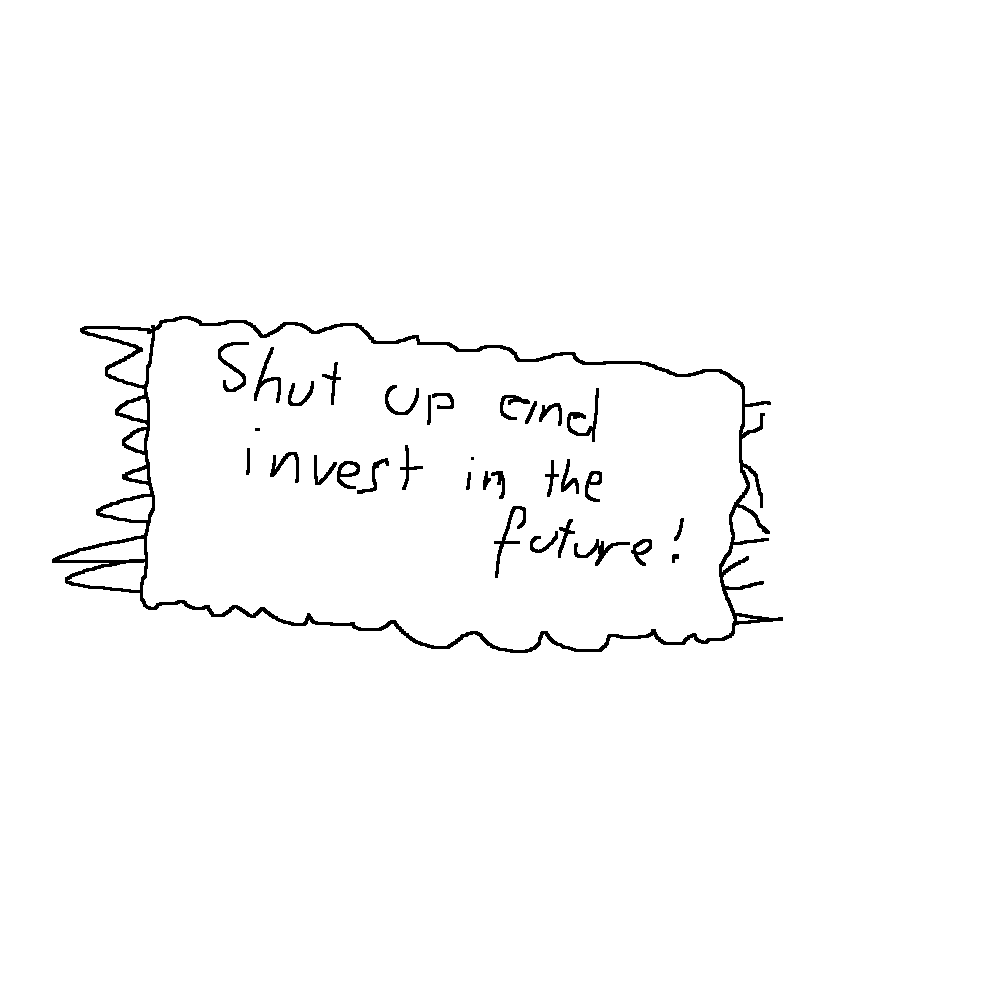 Shut up and
invest in the
future!